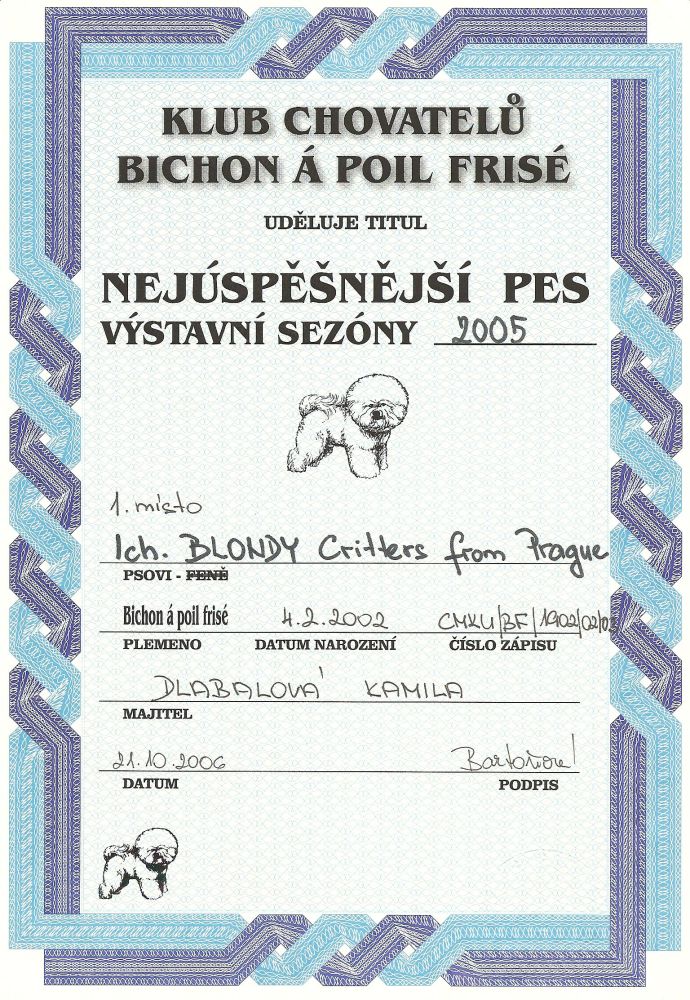 KLUB CHOVATELŮ
BICHON Á POIL FRISÉ
UDĚLUJE TITUL
NEJÚSPĚŠNĚJŠÍ PES
VÝSTAVNÍ SEZÓNY 2005
1. místo
Ich. BLONDY Critters from Prague
PSOVI - FENĚ
Bichon á poil frisé 4.2.2002 CMKU/BF/1902/02/
PLEMENO DATUM NAROZENÍ ČÍSLO ZÁPISU
DLABALOVÁ KAMILA
MAJITEL
21.10.2006
DATUM PODPIS